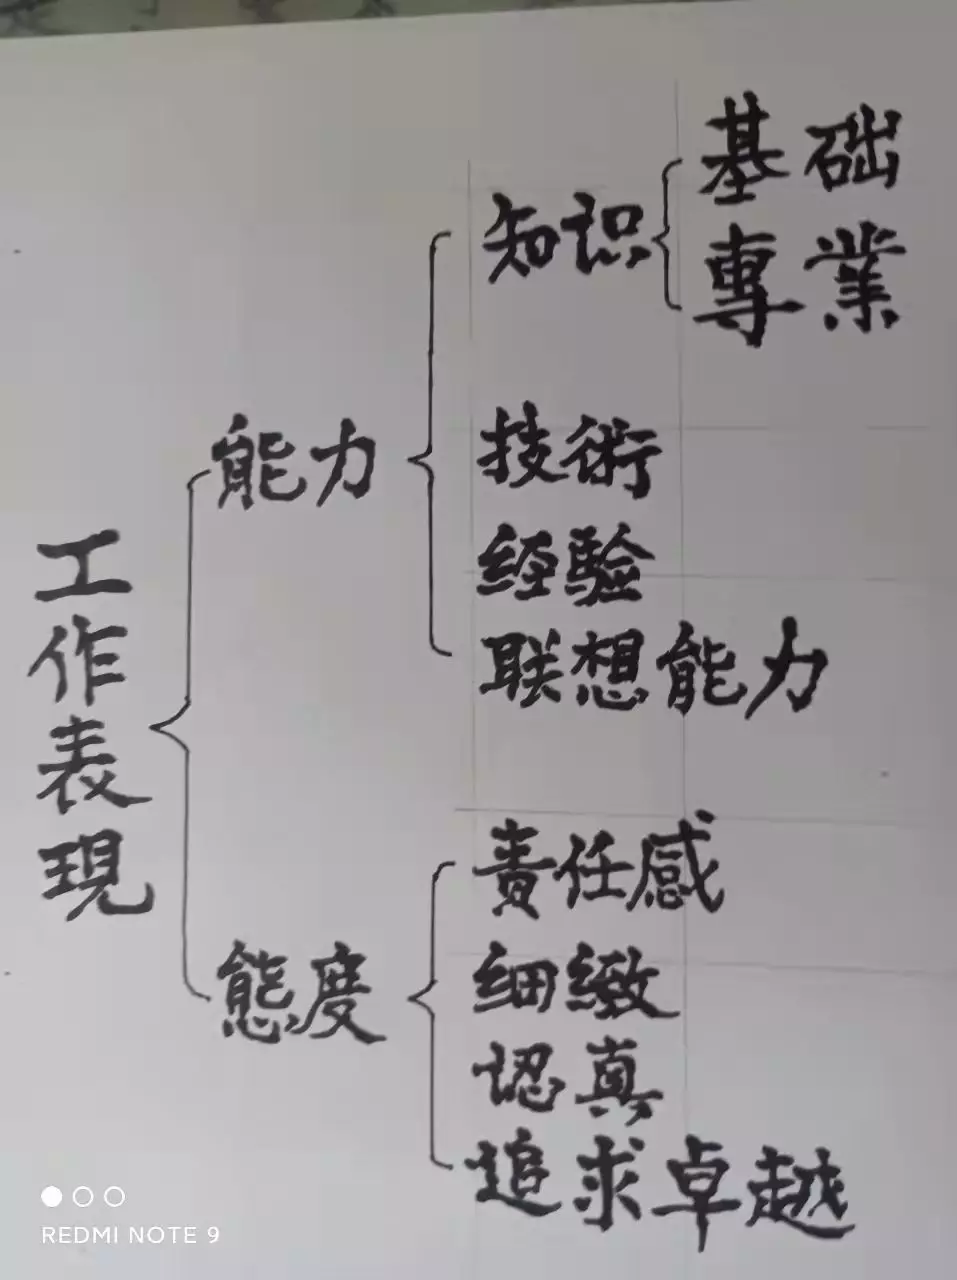 工作表現
能力
知识
基础
專業
技術
经验
联想能力
態度
责任感
细緻
認真
追求卓越
REDMI NOTE 9